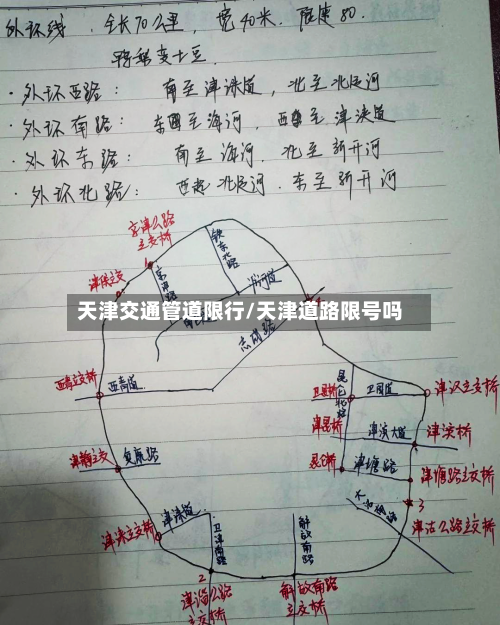 外环线.全长70公里,宽40米.限速80.
· 外环西路: 南至津涞道,北至北运河
· 外环南路: 东至海河,西至津涞道
· 外环东路: 南至海河.北至新开河
· 外环北路: 西起北运河.东至新开河
京津公路
立交桥
1
铁东北路
京津路
津保立交
天津交通管道限行/天津道路限号吗
志成路
西青立交桥
西青道
昆仑路
卫国道
津汉立交桥
津昆桥
津滨大道
津滨桥
昆仑桥
津塘路
津塘路立交桥
津静立交
复康路
3
津沽公路立交桥
津涞立交桥
津涞道
卫津南路
解放南路
2
津淄公路
立交桥
解放南路
立交桥